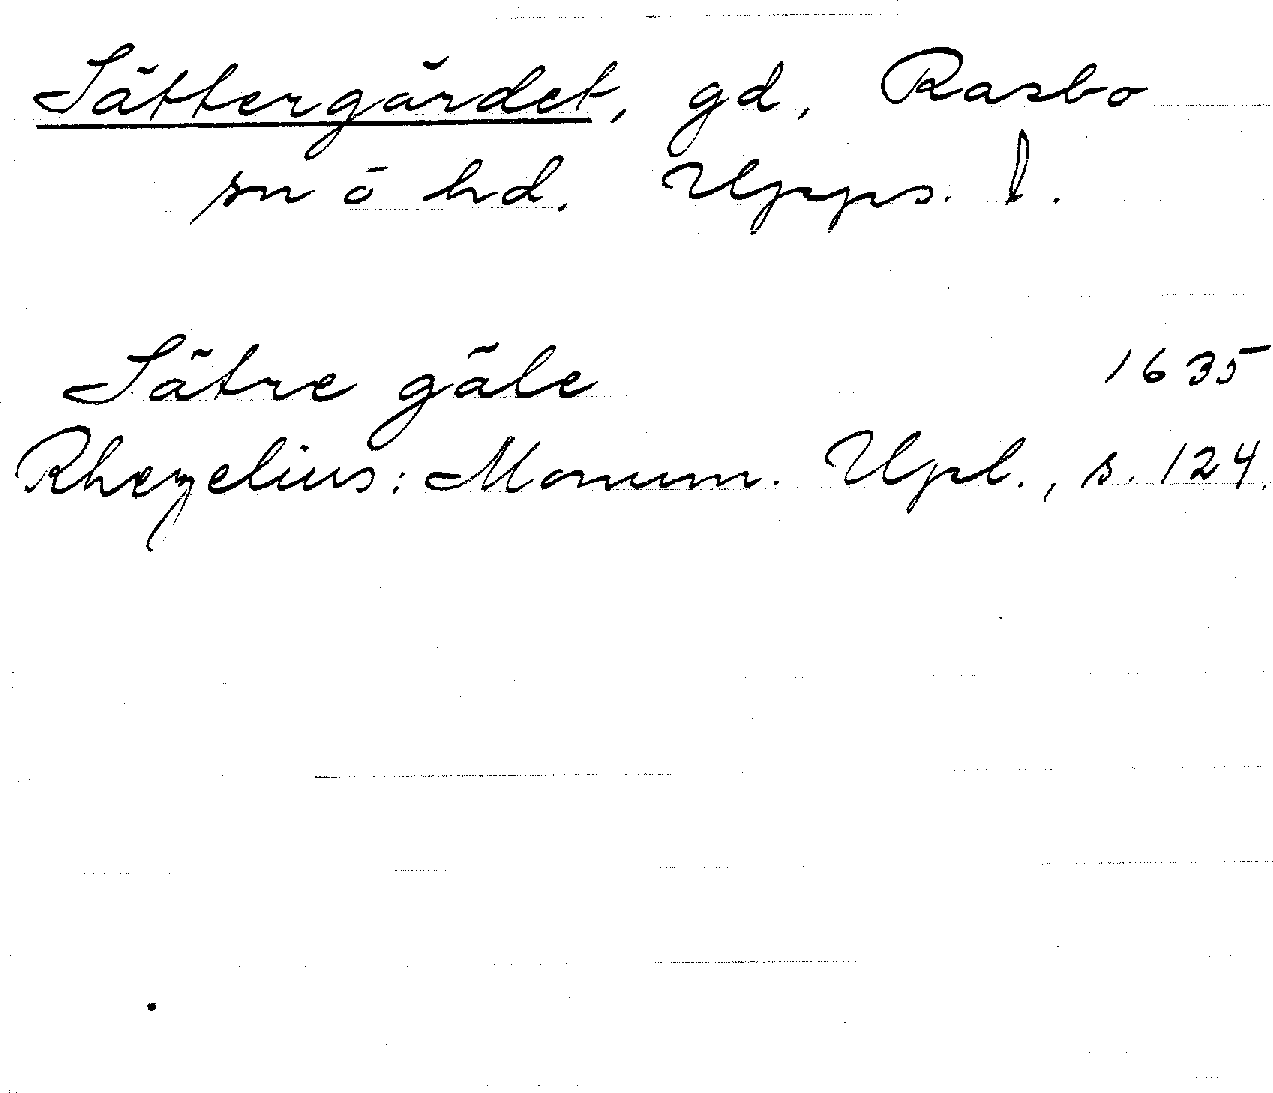 Sättergärdet, gd, Rasbo
sn o hd. Upps. l.
Sätre gäle 1635
Rhezelius: Monum. Upl., s. 124.